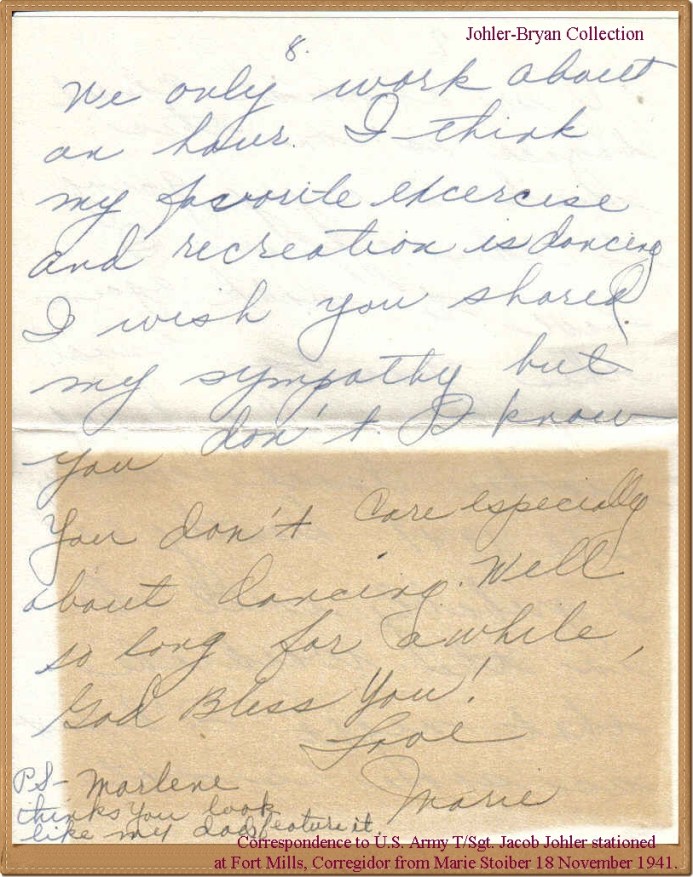 Johler-Bryan Collection
8.
We only work about
an hour. I think
my favorite excercise
and recreation is dancing.
I wish you shared
my sympathy but
you don't. I know
you don't care especially
about dancing. Well
so long for awhile,
God Bless You!
Love
Marie
PS- Marlene
thinks you look
like my dad, feature it.
Correspondence to U.S. Army T/Sgt. Jacob Johler stationed
at Fort Mills, Corregidor from Marie Stoiber 18 November 1941.